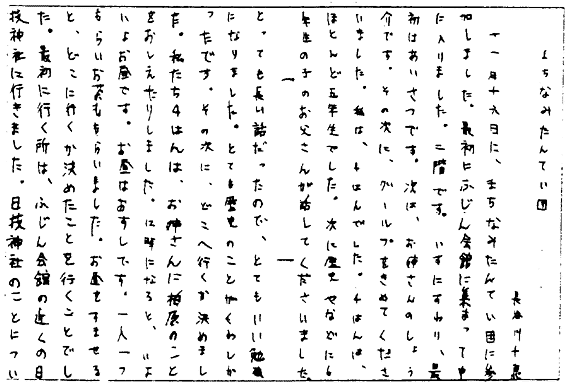 まちなみたんてい団
長谷川
十一月十六日に、まちなみたんてい団に参
加しました。最初にふじん会館に集まって中
に入りました。二階です。いすにすわり、最
初はあいさつです。次は、お姉さんのしょう
介です。その次に、グループをきめてくださ
いました。私は、4はんでした。4はんは、
ほとんど五年生でした。次に歴史やなどに
年生の子のお父さんが話してくださいました。
とっても長い話だったので、とてもいい勉強
になりました。とても歴史のことがくわしか
ったです。その次に、どこへ行くか決めまし
た。私たち4はんは、お姉さんに柏原のこと
をおしえたりしました。12時になると、いよ
いよお昼です。お昼はおすしです。一人一つ
もらいお茶ももらいました。お昼をすませる
と、どこに行くか決めたことを行くことでし
た。最初に行く所は、ふじん会館の近くの日
枝神社に行きました。日枝神社のことについ